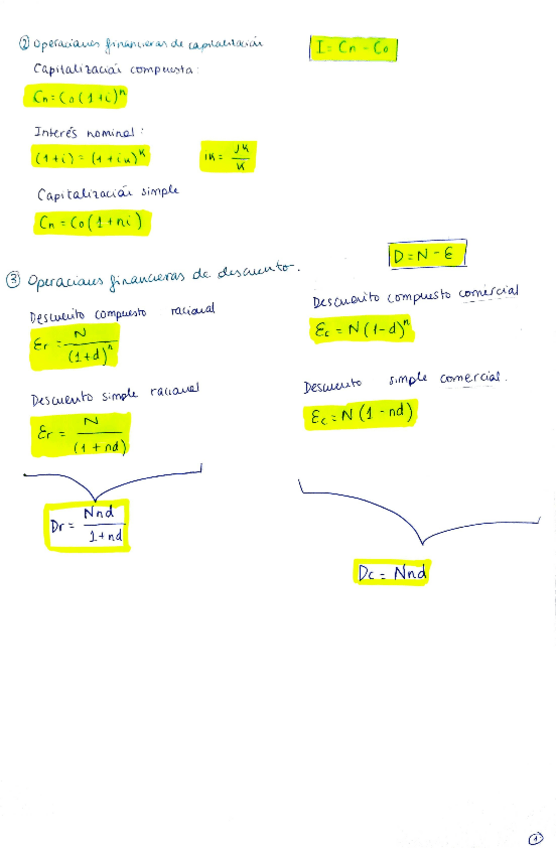 ② Operaciones financieras de capitalización
I = Cn - Co
Capitalización compuesta:
Cn = Co(1+i)^n
Interés nominal:
(1+i) = (1+ik)^k
ik = Jk/k
Capitalización simple
Cn = Co(1+ni)
D = N - E
③ Operaciones financieras de descuento.
Descuento compuesto racional
Er = N/(1+d)^n
Descuento compuesto comercial
Ec = N(1-d)^n
Descuento simple racional
Er = N/(1+nd)
Descuento simple comercial.
Ec = N(1-nd)
Dr = Nnd/1+nd
Dc = Nnd
①